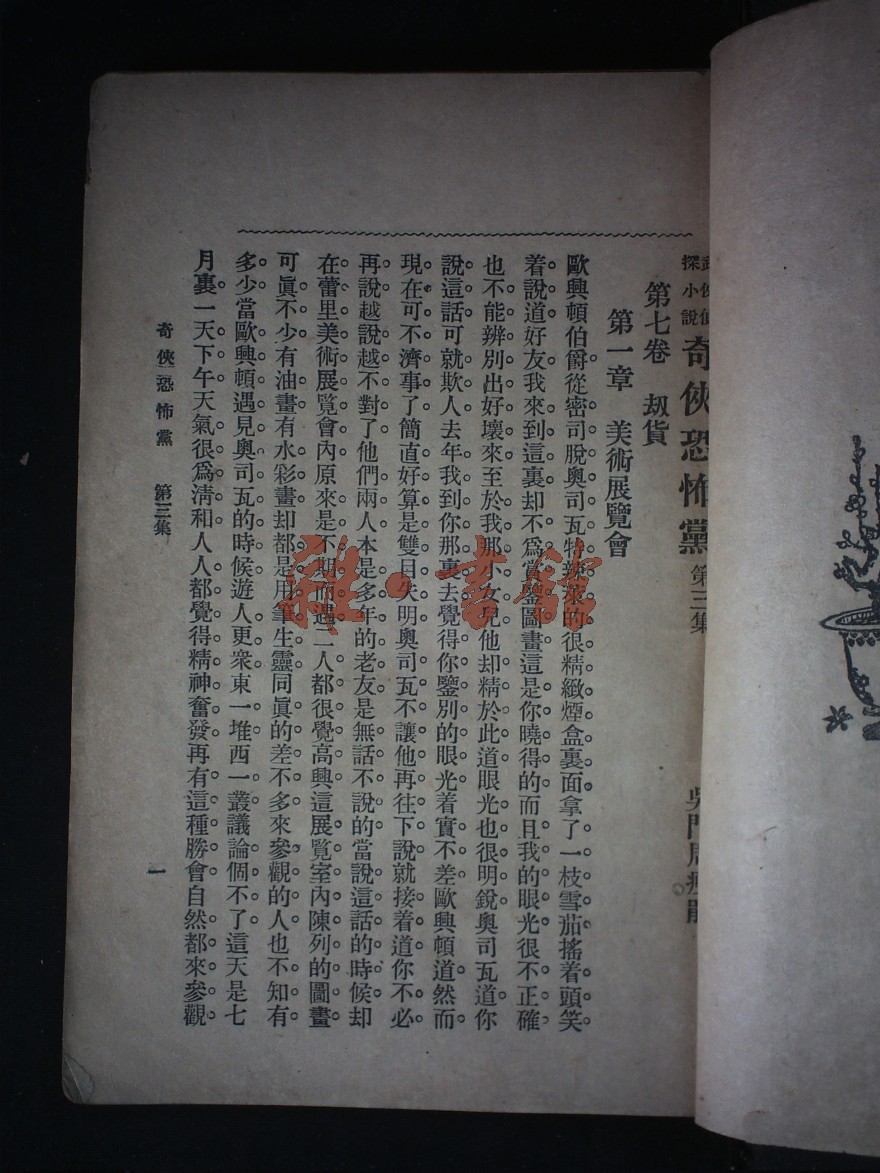 武俠偵
探小說
奇俠恐怖黨 第三集
吳門周瘦鵑
第七卷 刼貨
第一章 美術展覽會
歐興頓伯爵從密司脫奧司瓦特遞來的很精緻煙盒裏面拿了一枝雪茄搖着頭笑
着說道好友我來到這裏却不爲賞鑒圖畫這是你曉得的而且我的眼光很不正確
也不能辨別出好壞來至於我那小女兒他却精於此道眼光也很明銳奧司瓦道你
說這話可就欺人去年我到你那裏去覺得你鑒別的眼光着實不差歐興頓道然而
現在可不濟事了簡直好算是雙目失明奧司瓦不讓他再往下說就接着道你不必
再說越說越不對了他們兩人本是多年的老友是無話不說的當說這話的時候却
在蕾里美術展覽會內原來是不期而遇二人都很覺高興這展覽室內陳列的圖畫
可眞不少有油畫有水彩畫却都是用筆生靈同眞的差不多來參觀的人也不知有
多少當歐興頓遇見奧司瓦的時候遊人更衆東一堆西一叢議論個不了這天是七
月裏一天下午天氣很爲淸和人人都覺得精神奮發再有這種勝會自然都來參觀
奇俠恐怖黨 第三集
一
雜·書館